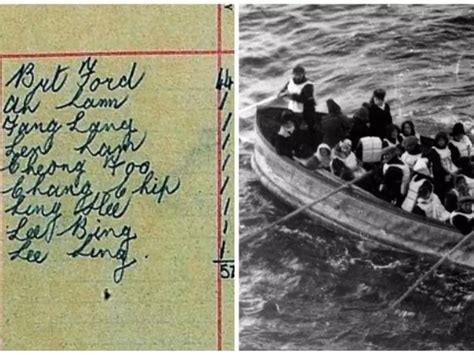 But Ford 44
Ah Lam 1
Fang Lang 1
Len Lam 1
Cheong Foo 1
Chang Chip 1
Ling Hee 1
Lee Bing 1
Lee Ling. 1
52